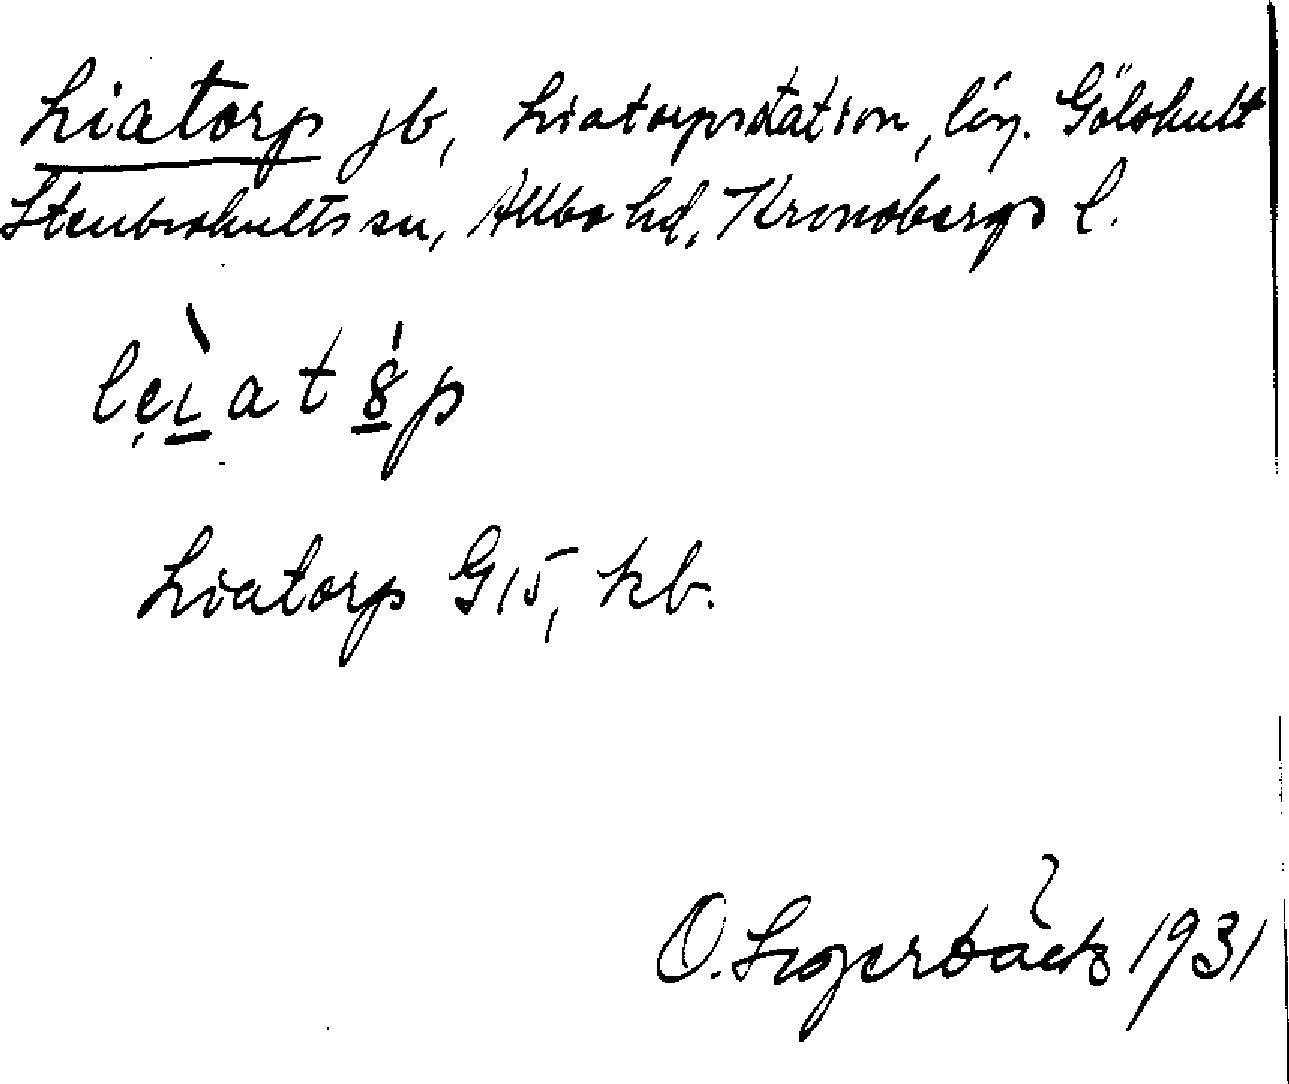 Liatorp jb, Liatorpstation, läg. Gölshult
Stenbrohults sn, Allbo hd, Kronobergs l.
Liatorp G15, kb.
O. 1931